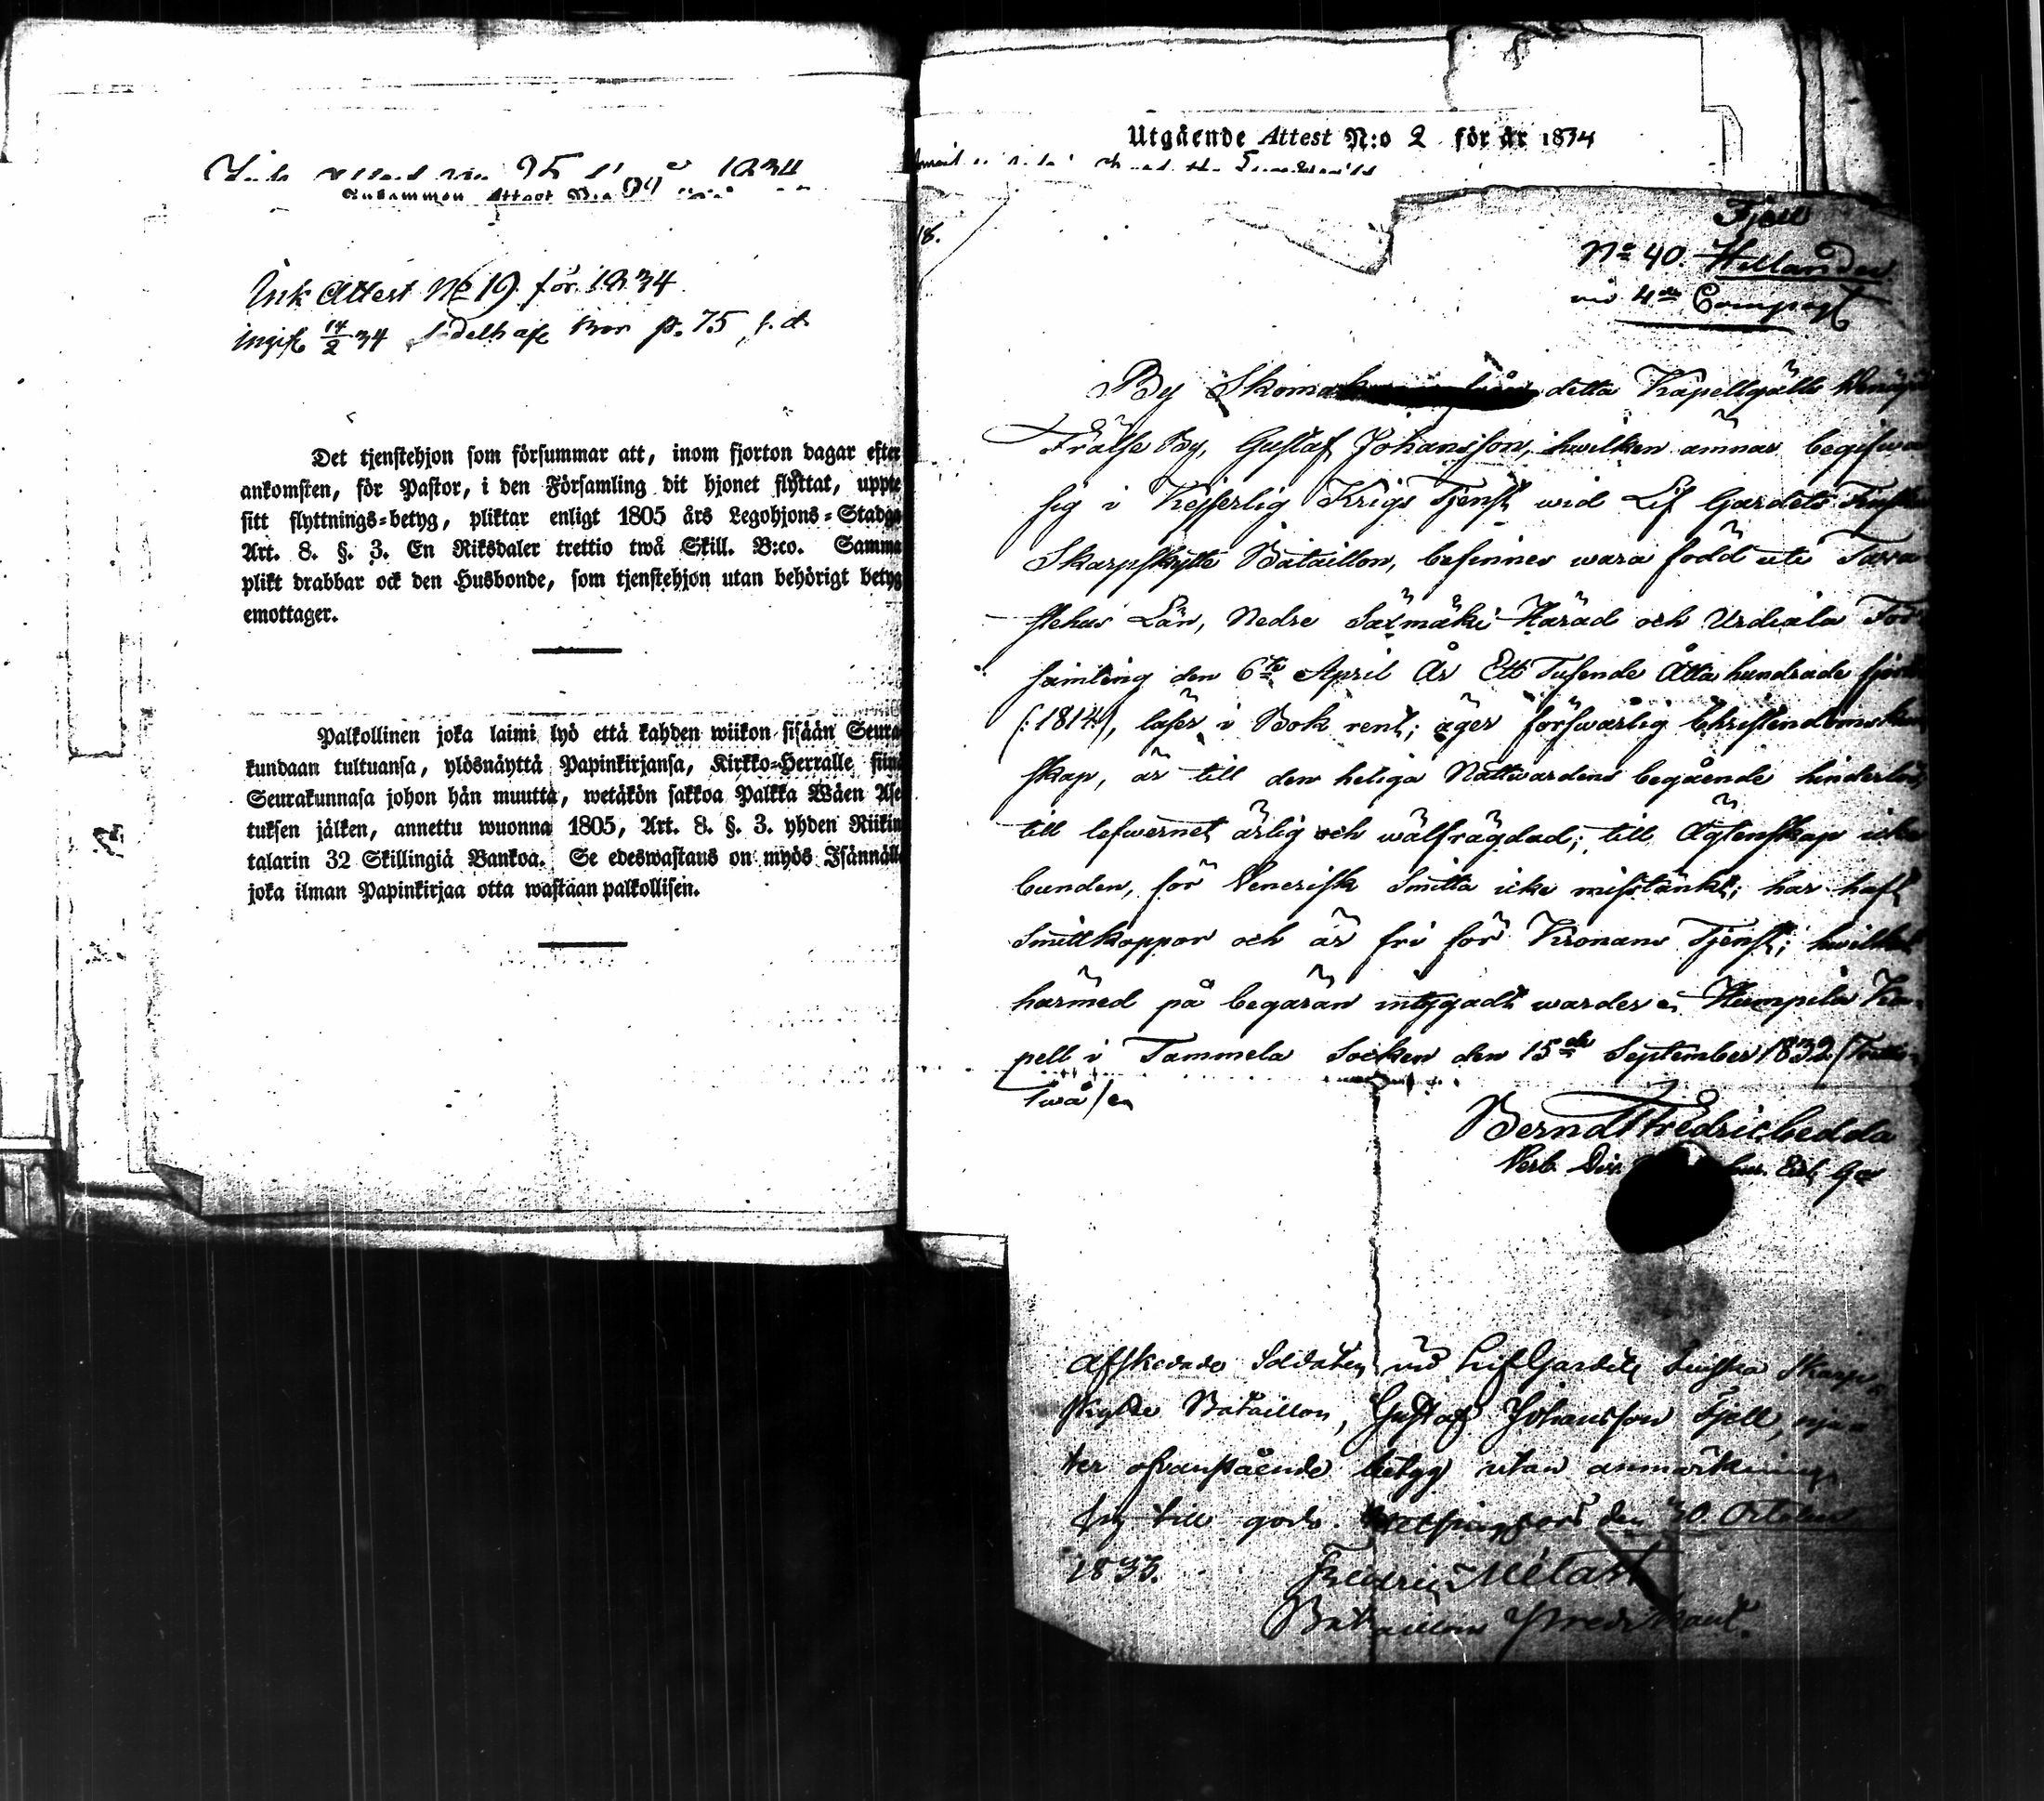 1834
Ink Attest No 19 för 1834
p. 75
Det tjenstehjon som försummar att, inom fjorton dagar efter
ankomsten, för Pastor, i den Församling dit hjonet flyttat, uppte
sitt flyttnings-betyg, pliktar enligt 1805 års Legohjons-Stadga
Art. 8. §. 3. En Riksdaler trettio twå Skill. B:co. Samma
plikt drabbar ock den Husbonde, som tjenstehjon utan behörigt betyg
emottager.
Palkollinen joka laimi lyö että kahden wiikon sisään Seura
kundaan tultuansa, ylösnäyttä Papinkirjansa, Kirkko-Herralle siinä
Seurakunnasa johon hän muutta, wetäkön sakkoa Palkka Wäen Ase
tuksen jälken, annettu wuonna 1805, Art. 8. §. 3. yhden Riikin
talarin 32 Skillingiä Bankoa. Se edeswastaus on myös Isännällä
joka ilman Papinkirjaa otta wastaan palkollisen.
Utgående Attest N:o 2 för år 1834
18.
Fjell
No 40. Hellander
vid 4de Compagt
By Skomak detta Kapellgälls
Frälse By, Gustaf Johansson, hwilken ämnar begifwa
sig i Kejserlig Krigs Tjenst wid Lif Gardets Finska
Skarpskytte Bataillon, befinnes wara född uti Tawa
stehus Län, Nedre Säxmäki Härad och Urdiala För
samling den 6te April År Ett Tusende Åtta hundrade fjorton
(:1814:), läser i Bok rent; äger förswarlig Christendomskun
skap, är till den heliga Nattwardens begående hinderlös,
till lefwernet ärlig och wälfrägdad; till Ägtenskap icke
bunden, för Venerisk Smitta icke misstänkt; har haft
Smittkoppor och är fri för Kronans Tjenst; hwilket
härmed på begäran intygadt warder i Humpila Ka-
pell i Tammela Socken den 15de September 1832 (Trettio-
twå/
Berndt Fredric Hedda
Afskedade Soldaten vid Lif Gardets Finska Skarp-
skytte Bataillon, Gustaf Johansson Fjell, nju-
ter ofvanstående betyg utan anmärkning
sig till godo. Helsingfors den 30 October
1833.
Fredric
Bataillons Predikant.